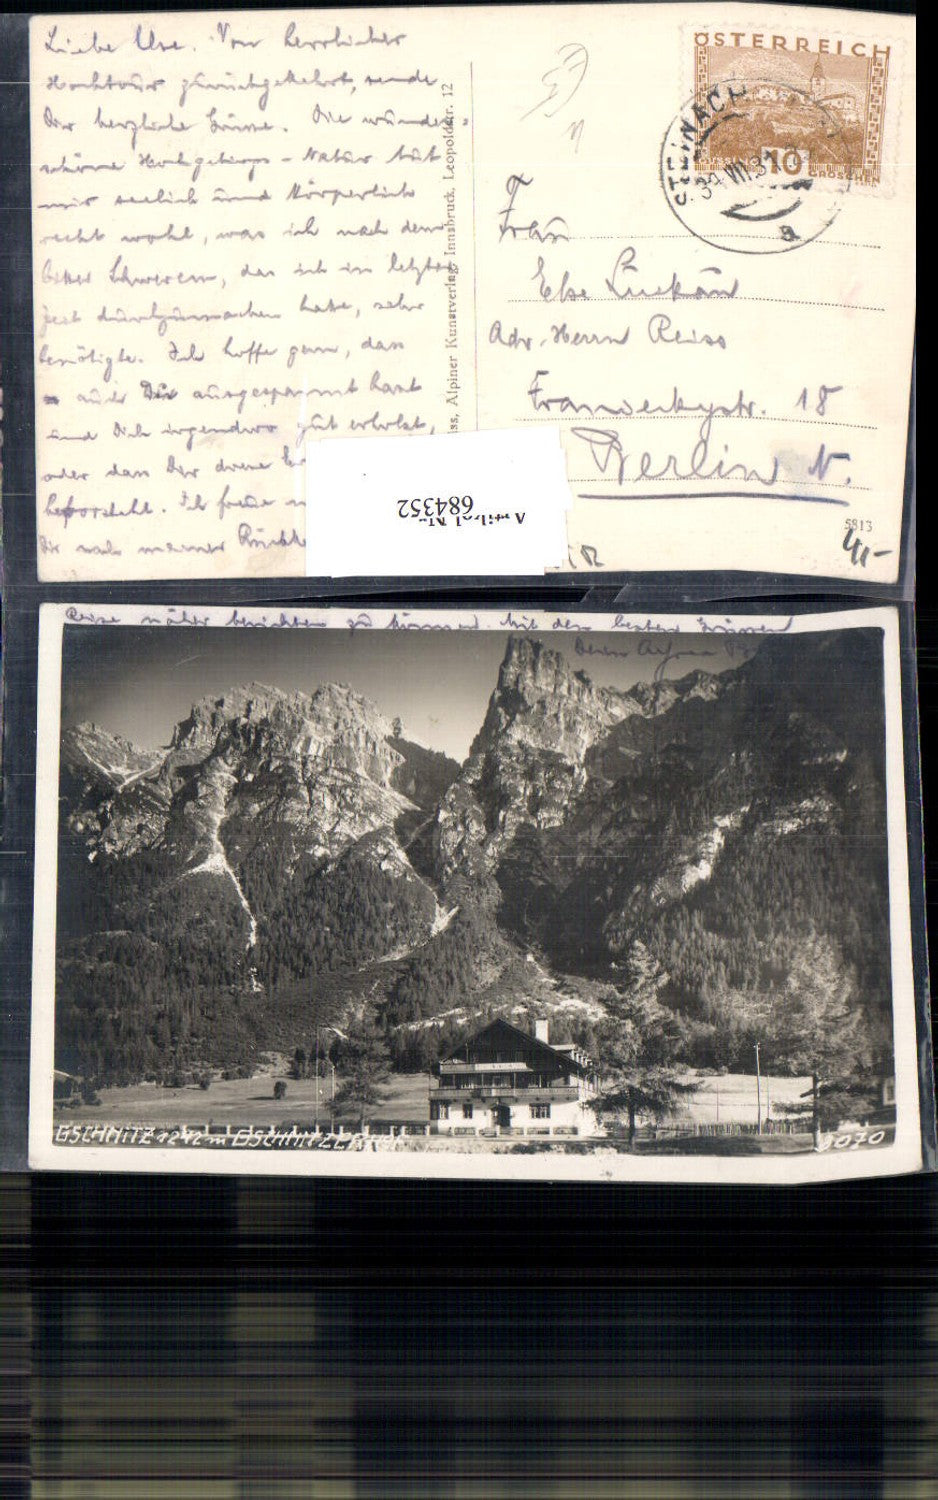 Liebe Else. Von herrlicher
Hochtour zurückgekehrt, sende
Dir herzliche Grüsse. Die wunder-
schöne Hochgebirgs-Natur tut
mir seelisch und körperlich
recht wohl, was ich nach dem
Schweren, das ich in letzter
Zeit durchzumachen hatte, sehr
benötigte. Ich hoffe gern, dass
auch Du ausgespannt hast
und Dich irgendwo gut erholtst,
oder dass Dir deine
bevorsteht. Ich freue
Dir nach meiner
ss, Alpiner Kunstverlag, Innsbruck, Leopoldstr. 12
ÖSTERREICH
10
GROSCHEN
STEINACH
31.VII.31
a
Frau
Else Luckau
Adr. Herrn Reiss
Franseckystr. 18
Berlin N.
5813
4,-
684352
Reise näher berichten zu können. Mit den besten Grüssen
Deine
GSCHNITZ 1242 m GSCHNITZERTAL
9070